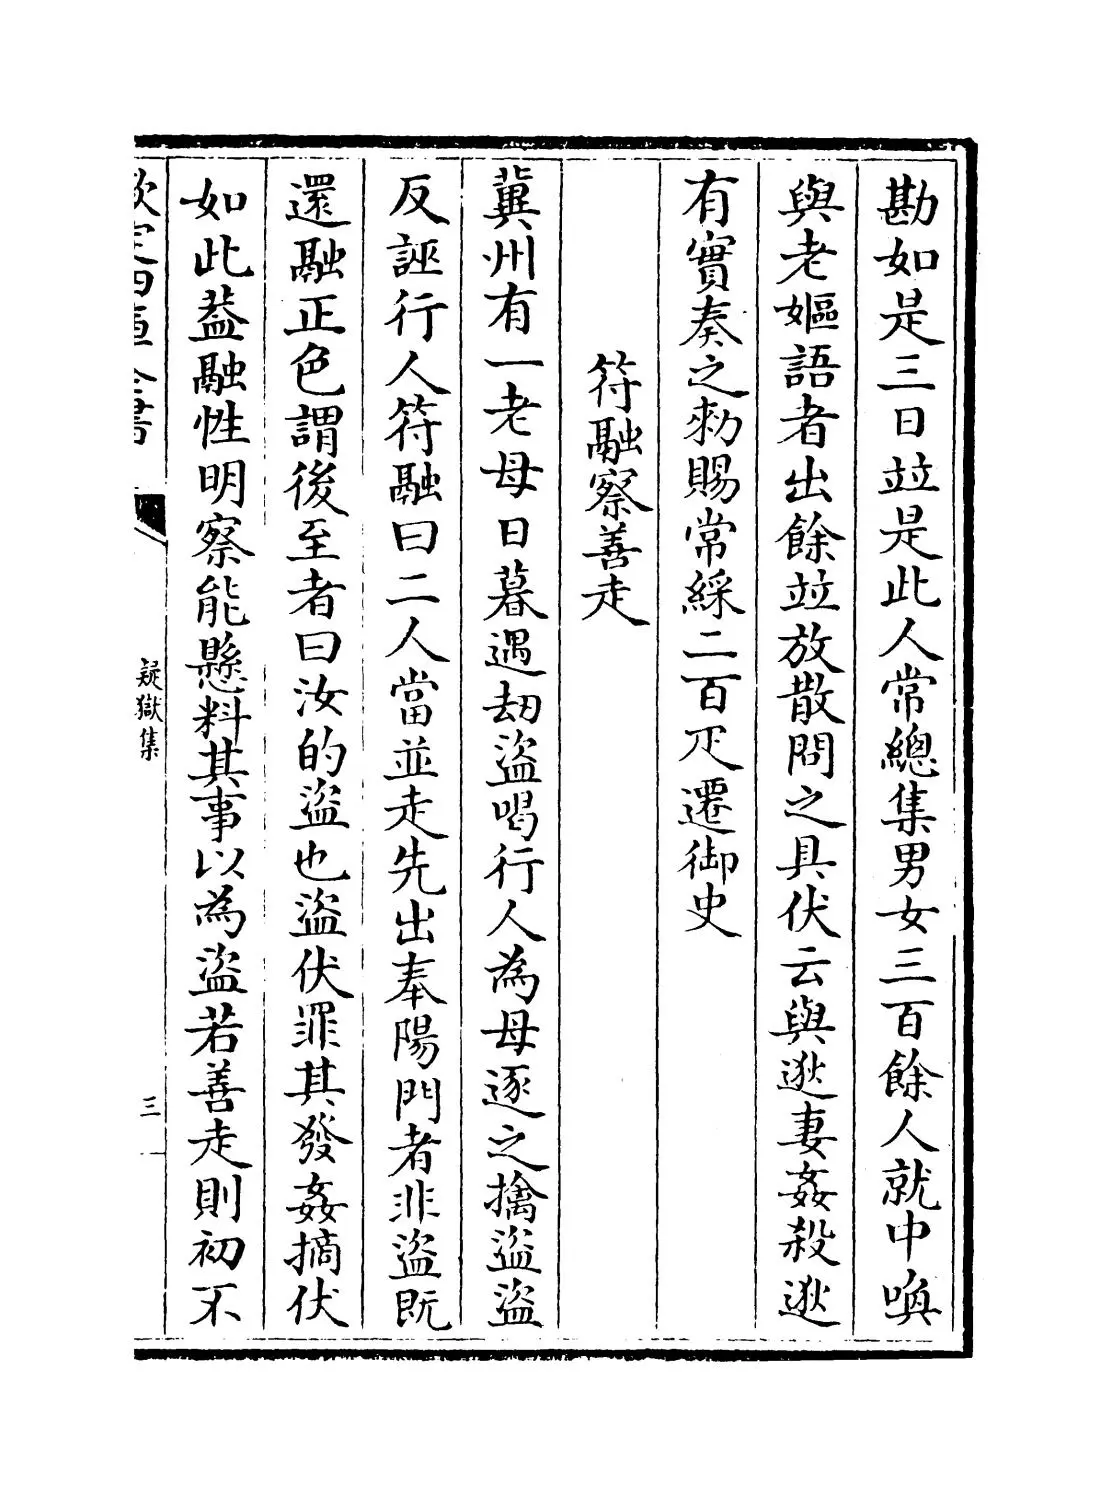 勘如是三日竝是此人常總集男女三百餘人就中喚
與老嫗語者出餘竝放散問之具伏云與逖妻姦殺逖
有實奏之勑賜常綵二百疋遷御史
符融察善走
冀州有一老母日暮遇刼盜喝行人為母逐之擒盜盜
反誣行人符融曰二人當並走先出奉陽門者非盜既
還融正色謂後至者曰汝的盜也盜伏罪其發姦摘伏
如此葢融性明察能懸料其事以為盜若善走則初不
欽定四庫全書
疑獄集
三